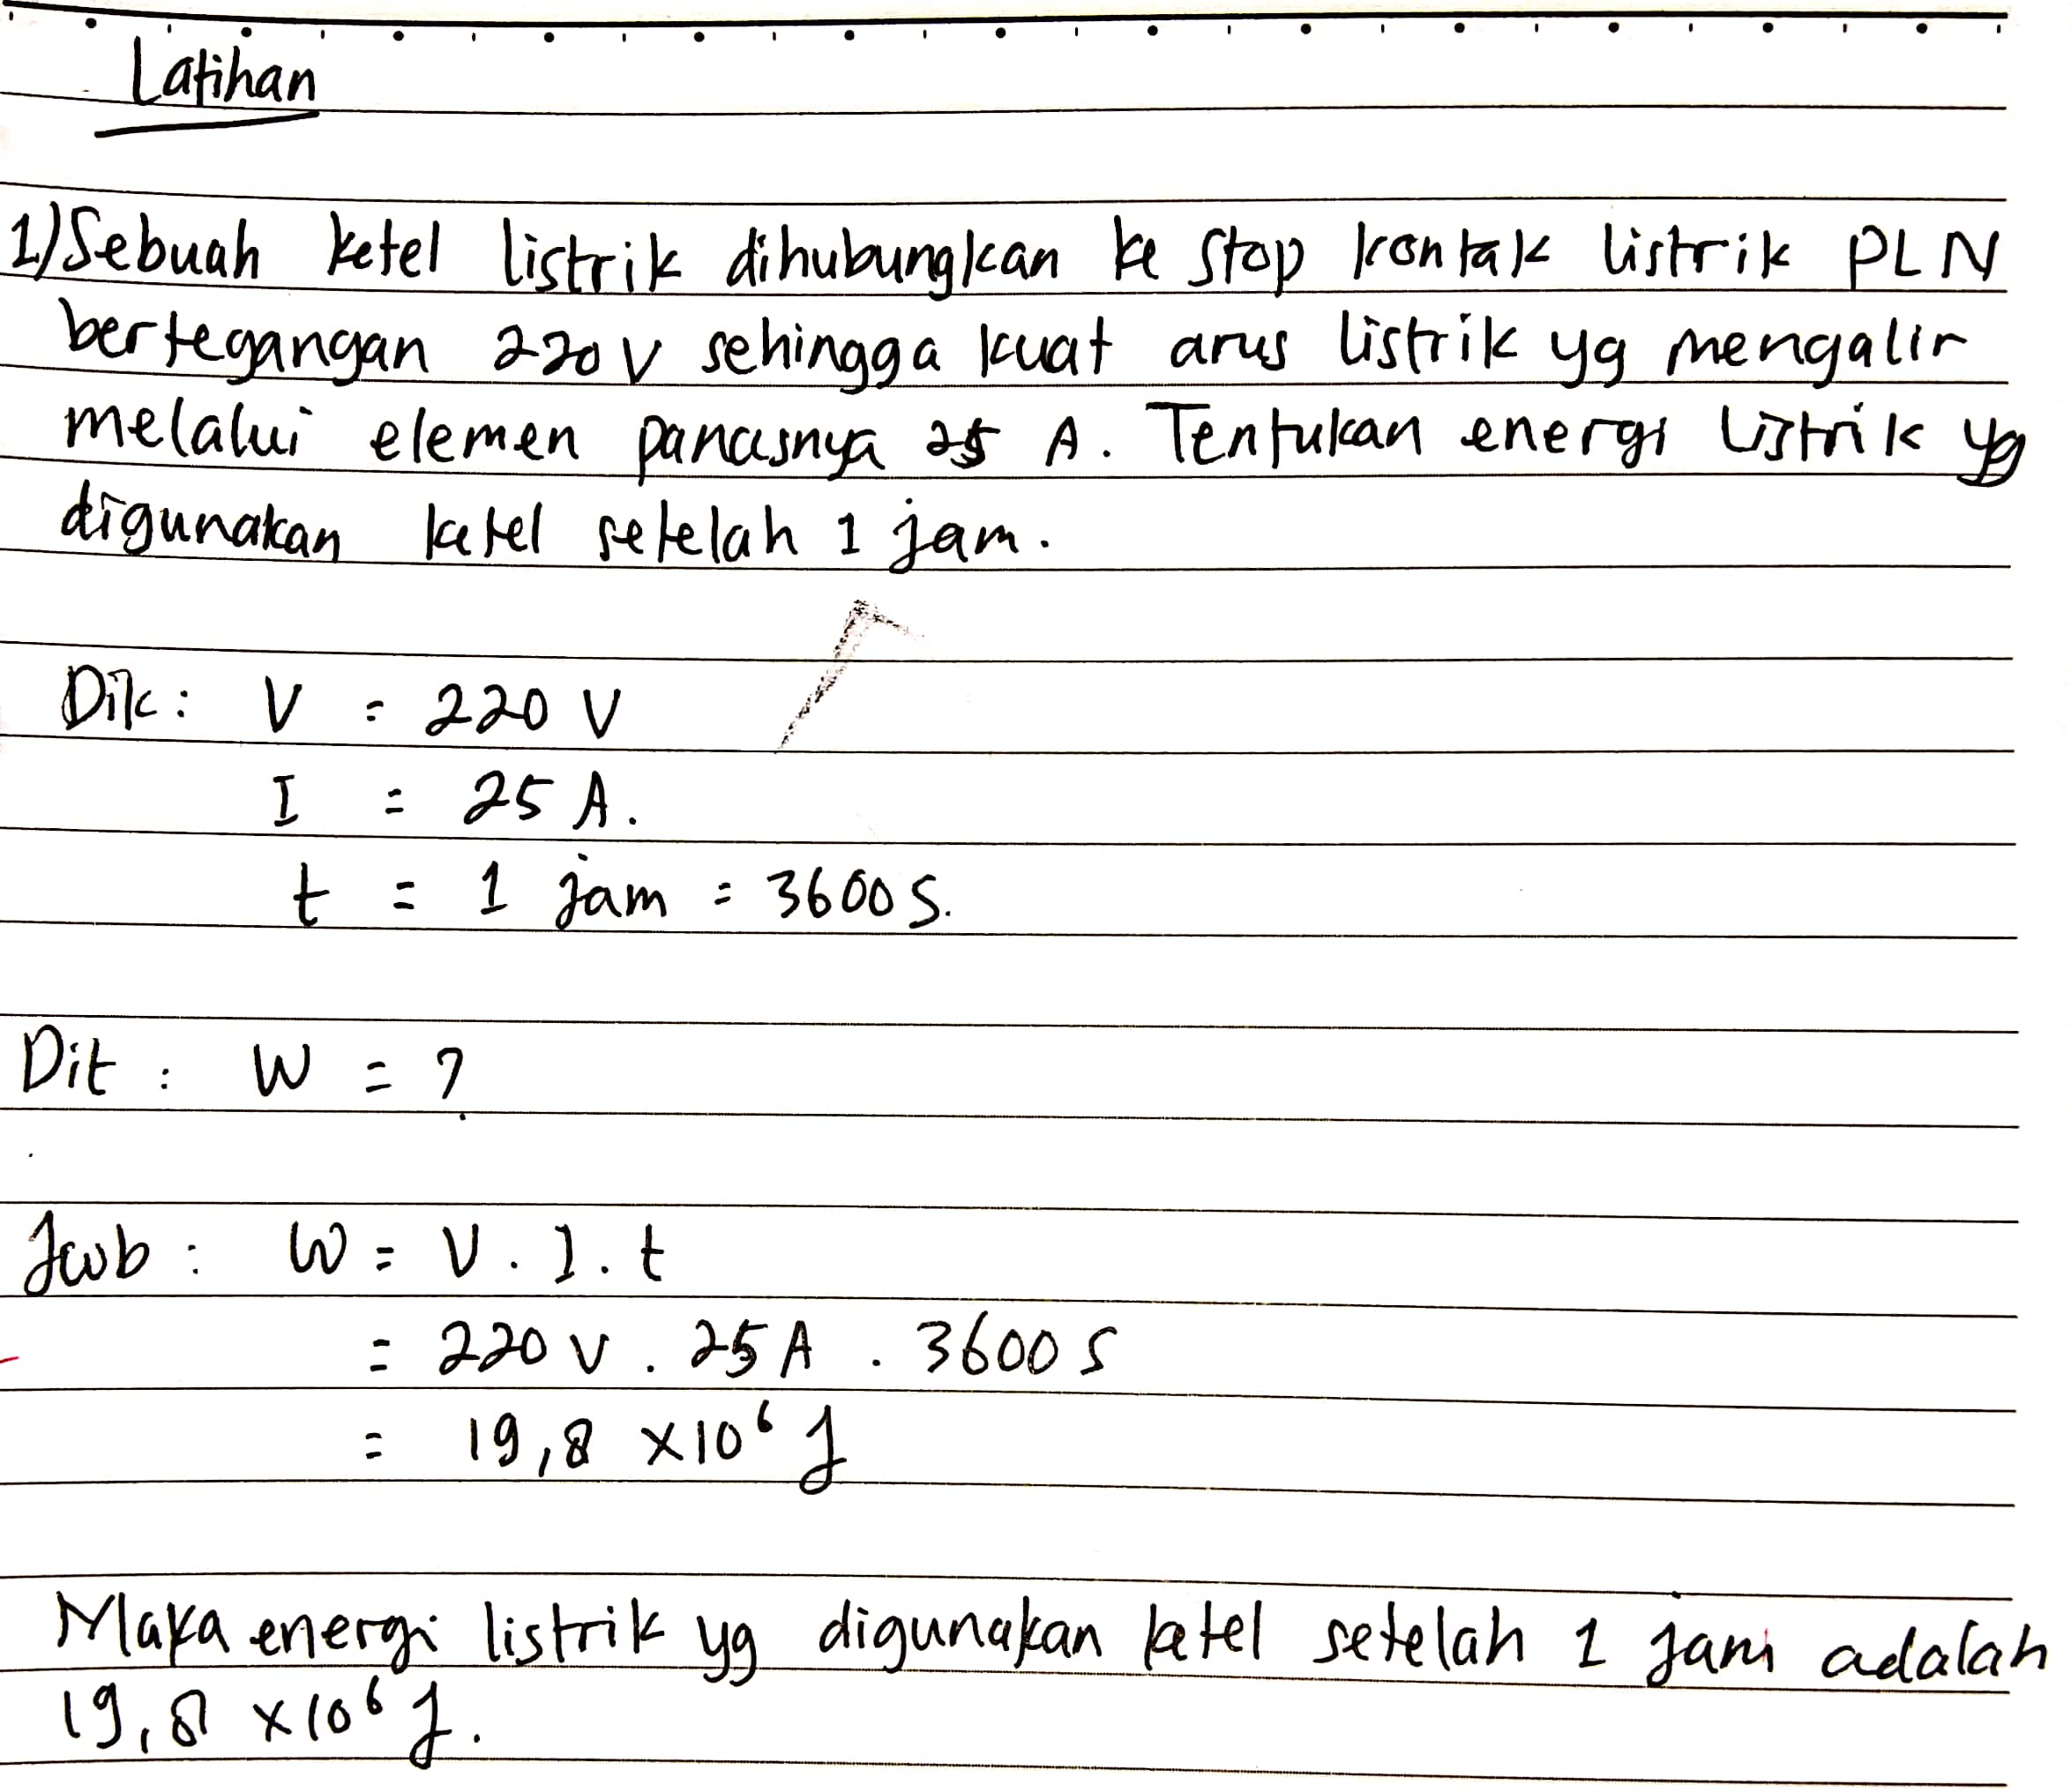 Latihan
1) Sebuah ketel listrik dihubungkan ke stop kontak listrik PLN
bertegangan 220 V sehingga kuat arus listrik yg mengalir
melalui elemen panasnya 25 A. Tentukan energi listrik yg
digunakan ketel setelah 1 jam.
Dik : V = 220 V
I = 25 A.
t = 1 jam = 3600 s.
Dit : W = ?
Jwb : W = V . I . t
= 220 V . 25 A . 3600 s
= 19,8 x 10⁶ J
Maka energi listrik yg digunakan ketel setelah 1 jam adalah
19,8 x 10⁶ J.